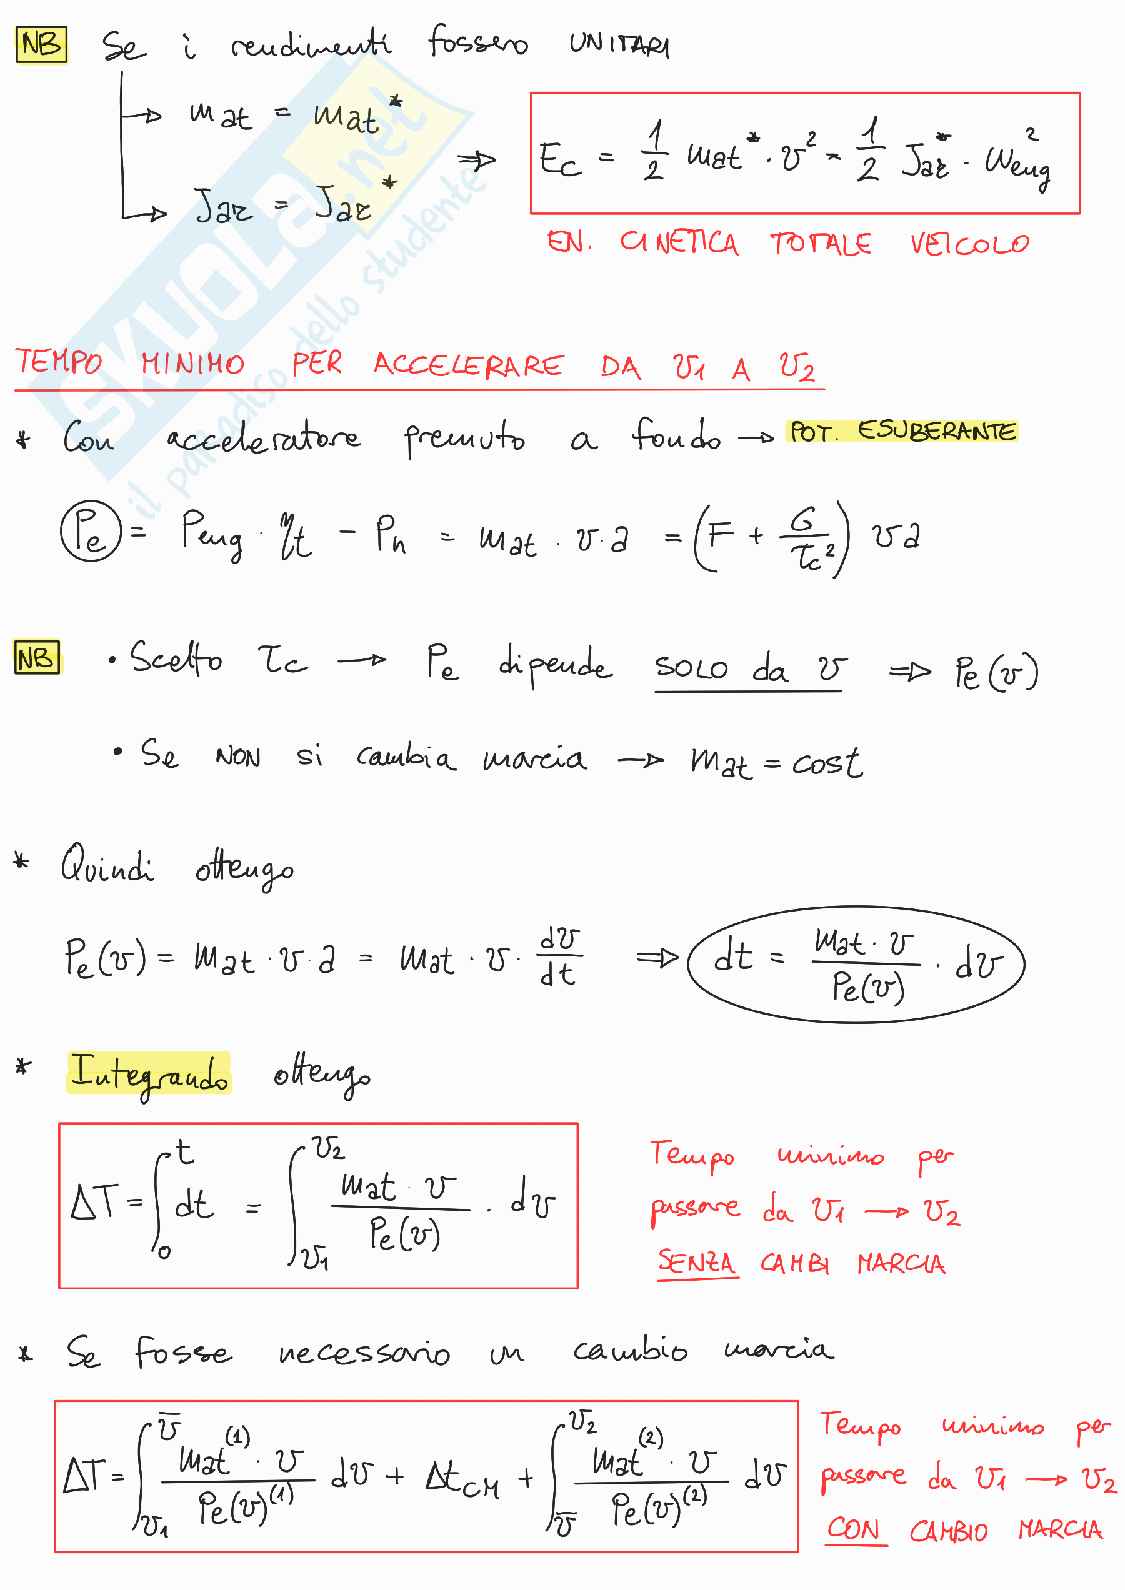 NB Se i rendimenti fossero UNITARI
→ mat = mat*
⇒ Ec = 1/2 mat* · v² = 1/2 Jar* · ωeng²
→ Jar = Jar*
EN. CINETICA TOTALE VEICOLO
TEMPO MINIMO PER ACCELERARE DA v1 A v2
* Con acceleratore premuto a fondo → POT. ESUBERANTE
Pe = Peng · ηt - Pn = mat · v · a = (F + G/τc²) v a
NB • Scelto τc → Pe dipende SOLO da v ⇒ Pe(v)
• Se NON si cambia marcia → mat = cost
* Quindi ottengo
Pe(v) = mat · v · a = mat · v · dv/dt ⇒ dt = mat · v / Pe(v) · dv
* Integrando ottengo
ΔT = ∫₀ᵗ dt = ∫v1^v2 mat · v / Pe(v) · dv
Tempo minimo per
passare da v1 → v2
SENZA CAMBI MARCIA
* Se fosse necessario un cambio marcia
ΔT = ∫v1^v̅ mat⁽¹⁾ · v / Pe(v)⁽¹⁾ dv + ΔtCM + ∫v̅^v2 mat⁽²⁾ · v / Pe(v)⁽²⁾ dv
Tempo minimo per
passare da v1 → v2
CON CAMBIO MARCIA
SKUOLA.net
il paradiso dello studente